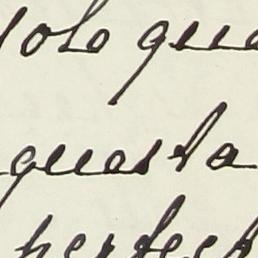 solo qua
questa
perfect